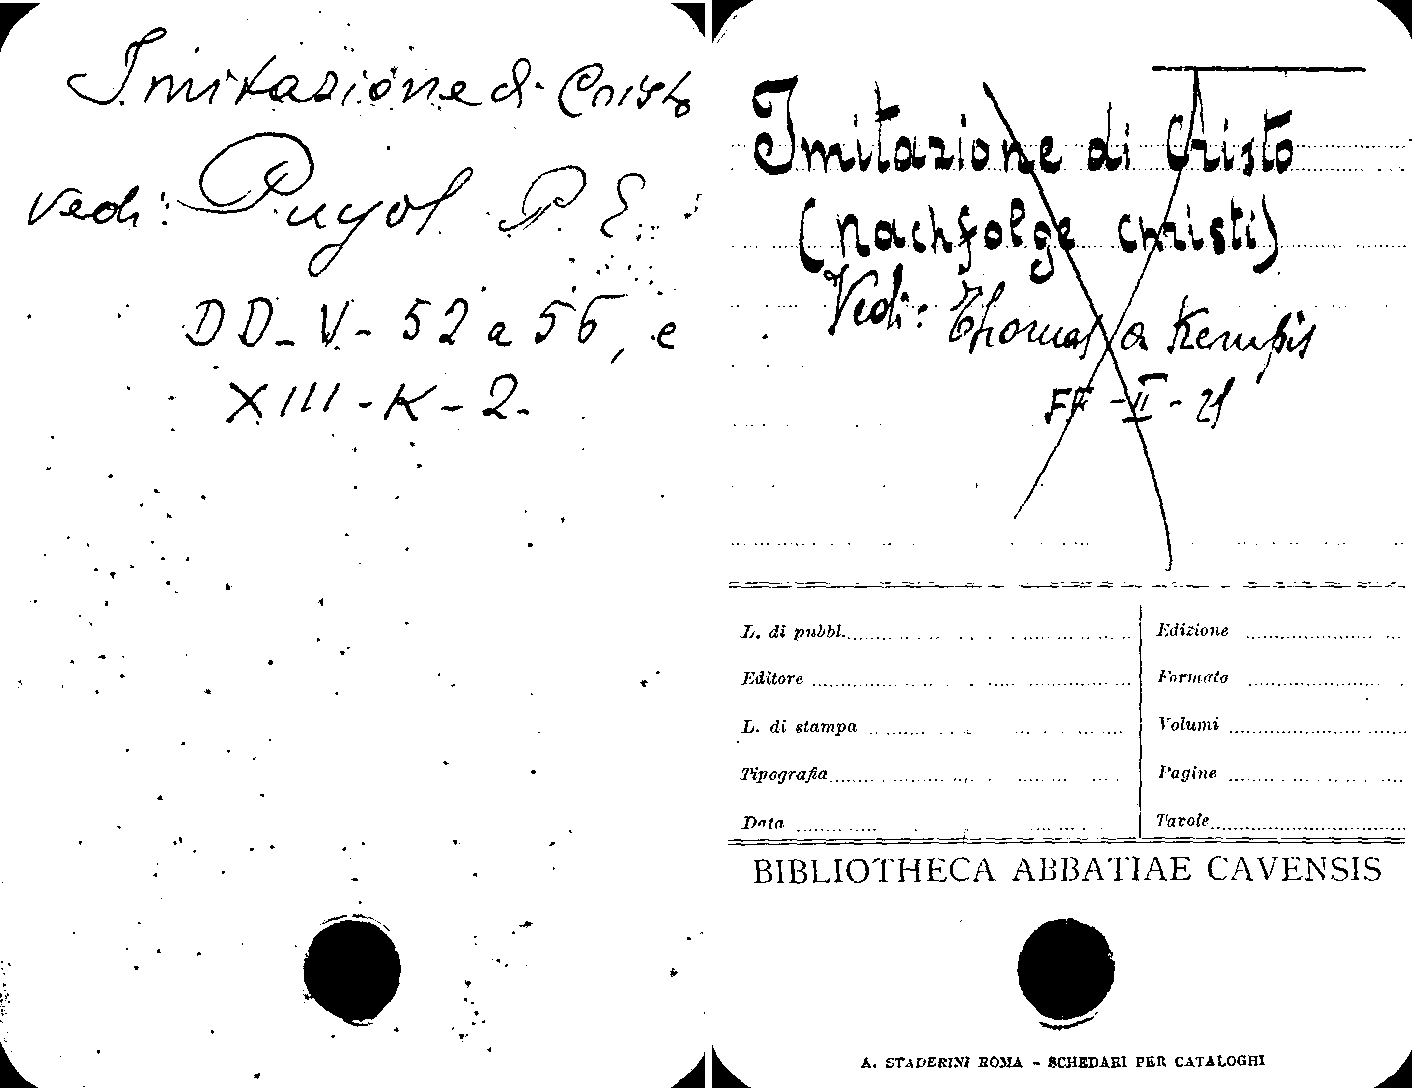 Imitazione di Cristo
vedi: Puyol P. E.
DD-V-52 a 56, e
XIII-K-2.
Imitazione di Cristo
(nachfolge christi)
Vedi: Thomas a Kempis
FF-II-21
L. di pubbl.
Edizione
Editore
Formato
L. di stampa
Volumi
Tipografia
Pagine
Data
Tavole
BIBLIOTHECA ABBATIAE CAVENSIS
A. STADERINI ROMA - SCHEDARI PER CATALOGHI